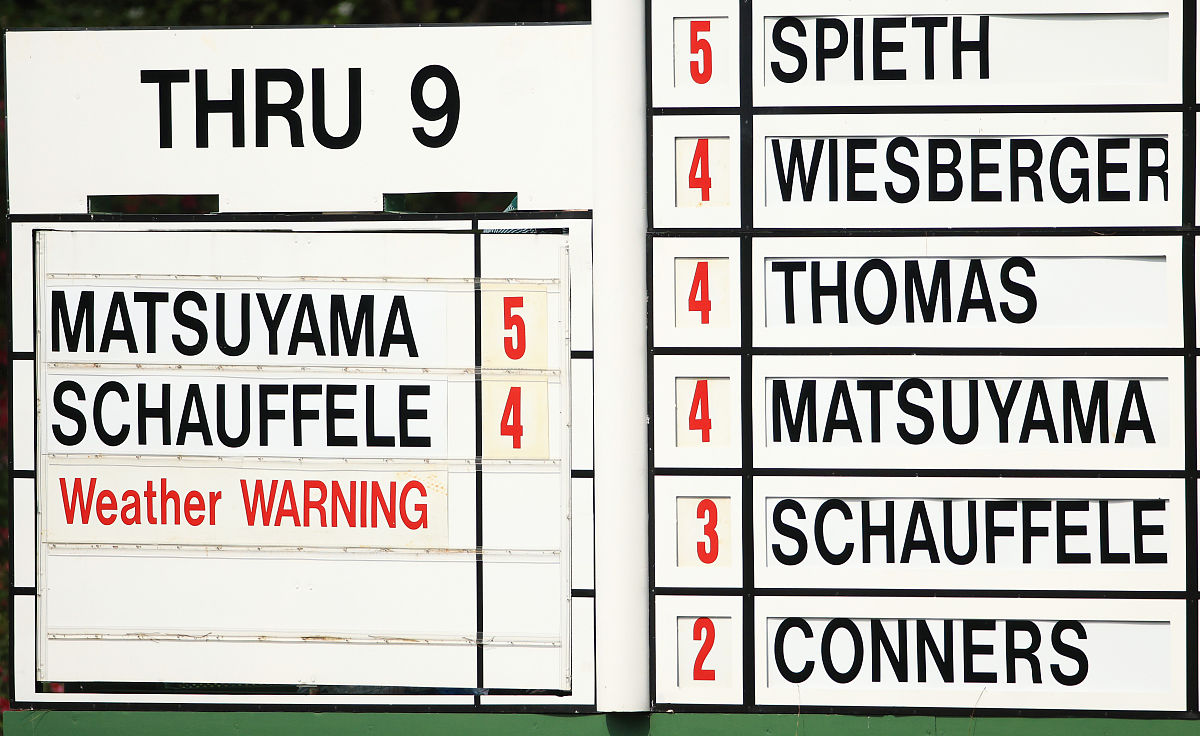 THRU 9
MATSUYAMA 5
SCHAUFFELE 4
Weather WARNING
5 SPIETH
4 WIESBERGER
4 THOMAS
4 MATSUYAMA
3 SCHAUFFELE
2 CONNERS